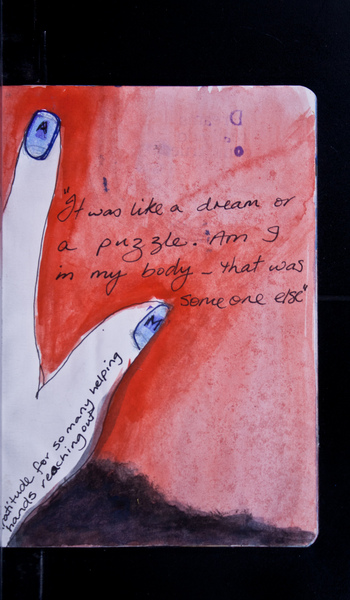 A
"It was like a dream or
a puzzle. Am I
in my body – that was
someone else"
N
ratitude for so many helping
hands reaching out